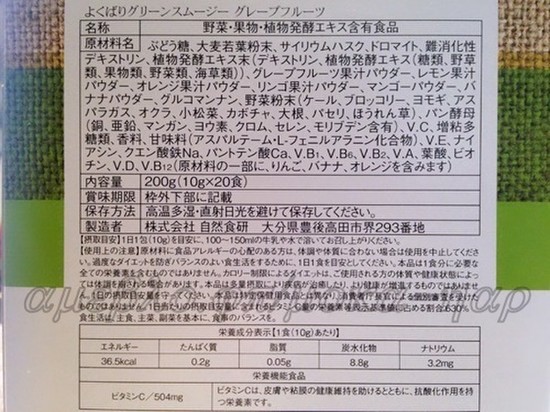 よくばりグリーンスムージー グレープフルーツ
名称 野菜・果物・植物発酵エキス含有食品
原材料名 ぶどう糖、大麦若葉粉末、サイリウムハスク、ドロマイト、難消化性
デキストリン、植物発酵エキス末(デキストリン、植物発酵エキス(糖類、野草
類、果物類、野菜類、海草類))、グレープフルーツ果汁パウダー、レモン果汁
パウダー、オレンジ果汁パウダー、リンゴ果汁パウダー、マンゴーパウダー、バ
ナナパウダー、グルコマンナン、野菜粉末(ケール、ブロッコリー、ヨモギ、アス
パラガス、オクラ、小松菜、カボチャ、大根、パセリ、ほうれん草)、パン酵母
(銅、亜鉛、マンガン、ヨウ素、クロム、セレン、モリブデン含有)、V.C、増粘多
糖類、香料、甘味料(アスパルテーム・L-フェニルアラニン化合物)、V.E、ナイ
アシン、クエン酸鉄Na、パントテン酸Ca、V.B1、V.B6、V.B2、V.A、葉酸、ビオ
チン、V.D、V.B12(原材料の一部に、りんご、バナナ、オレンジを含みます)
内容量 200g(10g×20食)
賞味期限 枠外下部に記載
保存方法 高温多湿・直射日光を避けて保存してください。
製造者 株式会社 自然食研 大分県豊後高田市界293番地
【摂取目安】1日1包(10g)を目安に、100～150mlの牛乳や水で溶いてお召し上がりください。
【使用上の注意】原材料に食品アレルギーの心配のある方は、体調や体質に合わない場合は使用を中止してください。
過度なダイエットを防ぎバランスのよい食生活をするために、1日1食を目安としてください。本品は1食分に必要な全
ての栄養素を含むものではありません。カロリー制限によるダイエットは、ご使用される方の体質や健康状態によっ
ては体調を崩される場合があります。本品は多量摂取により疾病が治癒したり、より健康が増進するものではありませ
ん。1日の摂取目安量を守ってください。本品は特定保健用食品とは異なり、消費者庁長官による個別審査を受けた
ものではありません。1日当たりの摂取目安量に含まれるビタミンC量の栄養素等表示基準値に占める割合:630%
食生活は、主食、主菜、副菜を基本に、食事のバランスを。
栄養成分表示【1食(10g)あたり】
エネルギー たんぱく質 脂質 炭水化物 ナトリウム
36.5kcal 0.2g 0.05g 8.8g 3.2mg
栄養機能食品
ビタミンC/504mg ビタミンCは、皮膚や粘膜の健康維持を助けるとともに、抗酸化作用を持
つ栄養素です。